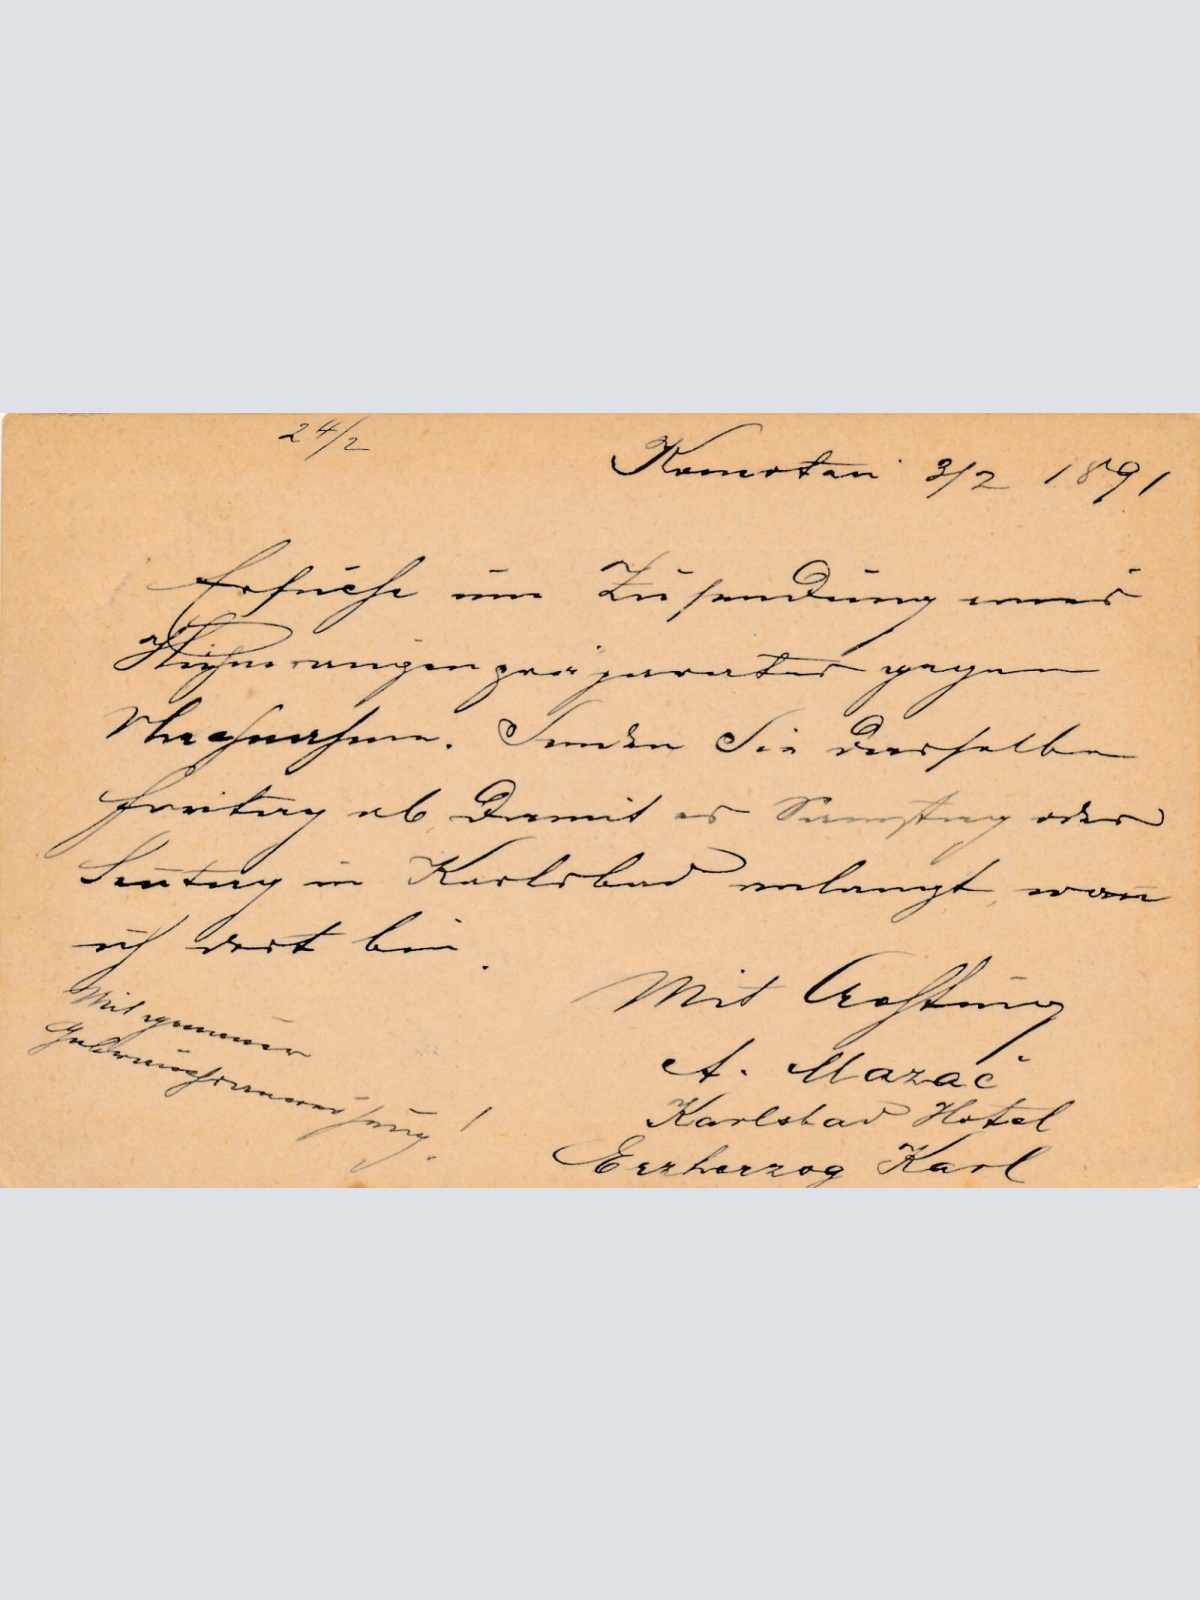 24/2
Komotau 3/2 1891
Ersuche um Zusendung eines
Hühneraugenpräparates gegen
Nachnahme. Senden Sie dasselbe
Freitag ab damit es Samstag oder
Sontag in Karlsbad anlangt, wan
ich dort bin.
Mit genauer
Gebrauchsanweisung!
Mit Achtung
A. Mazač
Karlsbad Hotel
Erzherzog Karl